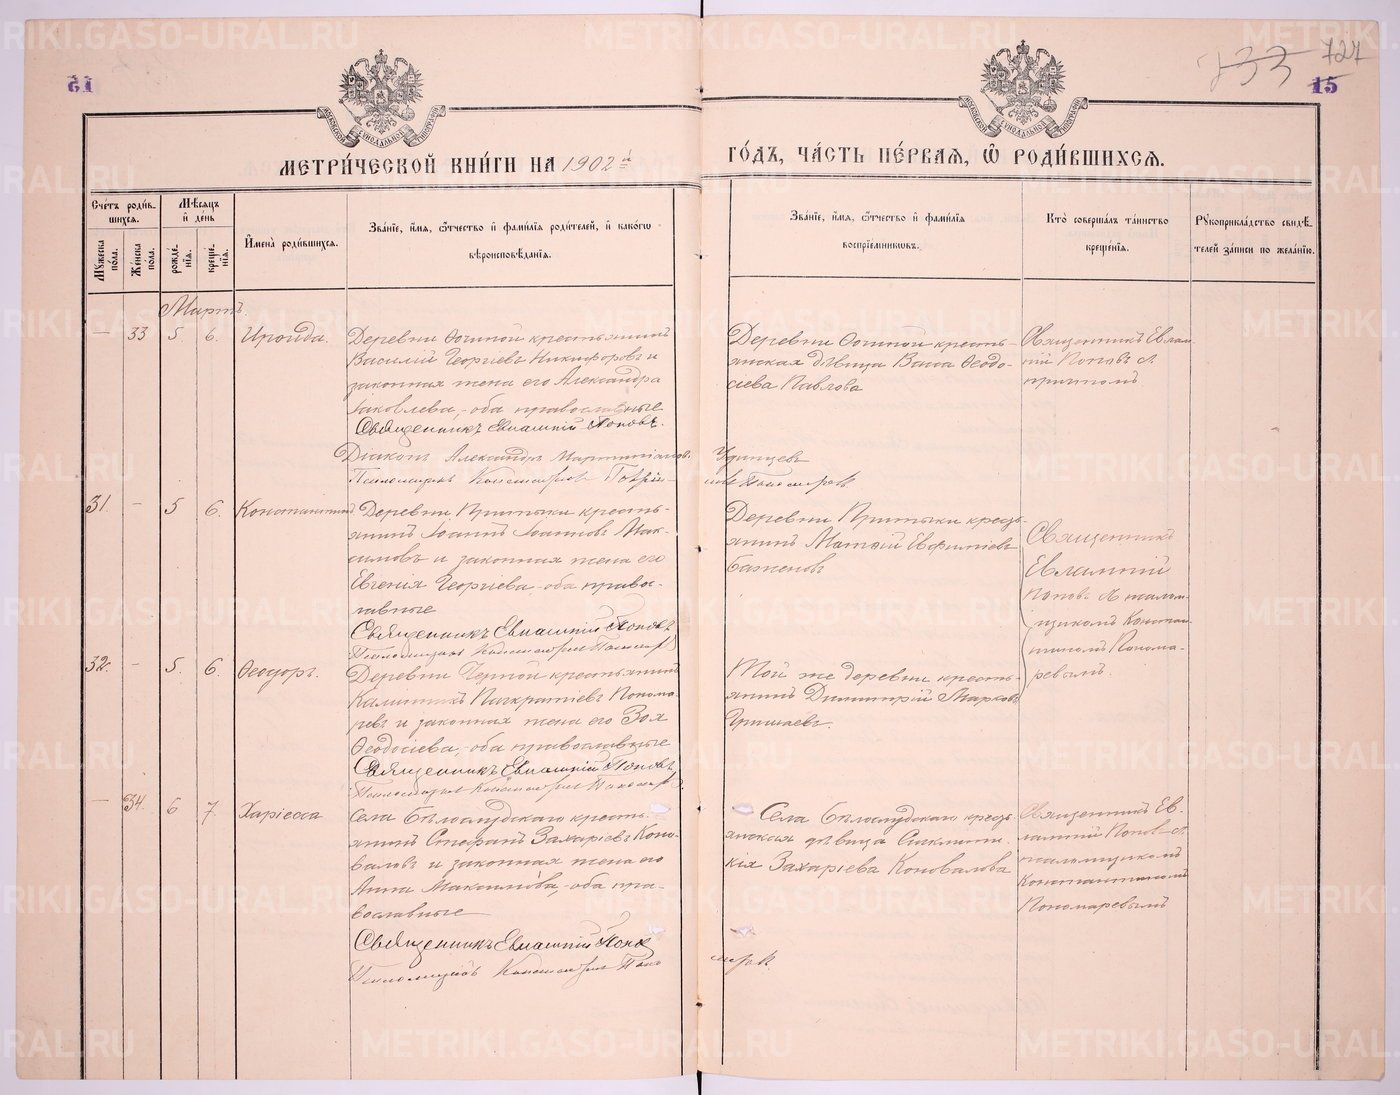 15
733
727
15
МОСКОВСКОЙ СѴНОДАЛЬНОЙ ТИПОГРАФІИ
МОСКОВСКОЙ СѴНОДАЛЬНОЙ ТИПОГРАФІИ
МЕТРИ́ЧЕСКОЙ КНИ́ГИ НА 1902 й
ГО́ДЪ, ЧА́СТЬ ПЕ́РВАЯ, Ѡ РОДИ́ВШИХСЯ.
Сче́тъ роди́в-
шихся.
Му́жеска по́ла.
Же́нска по́ла.
Мѣ́сяцъ
и де́нь
рожде́-
нія.
креще́-
нія.
И́мена роди́вшихся.
Зва́ніе, и́мя, ѻ҆́тчество и фами́лія роди́телей, и како́гѡ
вѣроисповѣ́данія.
Зва́ніе, и́мя, ѻ҆́тчество и фами́лія
воспріе́мниковъ.
Кто̀ соверша́лъ та́инство
креще́нія.
Рꙋкоприкла́дство свидѣ́-
телей за́писи по жела́нію.
Мартъ.
— 33 5. 6. Ираида.
Деревни Ѳотиной крестьянинъ
Василій Георгіевъ Никифоровъ и
законная жена его Александра
Іаковлева, оба православные
Священникъ Евлампій Поповъ.
Діаконъ Александръ
Псаломщикъ Константинъ
Деревни Ѳотиной кресть-
янская дѣвица Васса Ѳеодо-
сіева Павлова
Священникъ Евлам-
пій Поповъ с
причтомъ
31. — 5 6. Константинъ
Деревни Притыки кресть-
янинъ Іоаннъ Іоанновъ Мак-
симовъ и законная жена его
Евгенія Георгіева оба право-
славные
Священникъ Евлампій Поповъ
Псаломщикъ Константинъ Пономарев
Деревни Притыки кресть-
янинъ Матѳій Евфиміевъ
Баженовъ
Священникъ
Евлампій
Попов с псалом-
щикомъ Констан-
тиномъ Понома-
ревымъ.
32. — 5. 6. Ѳеодоръ.
Деревни Черной крестьянинъ
Каллиникъ Панкратіевъ Понома-
ревъ и законная жена его Зоя
Ѳеодосіева, оба православные
Священникъ Евлампій Поповъ
Псаломщикъ Константинъ Пономарев
Той же деревни кресть-
янинъ Димитрій Марковъ
— 34. 6 7. Харіесса
Села Бѣлослудскаго кресть-
янинъ Стефанъ Захаріевъ Коно-
валовъ и законная жена его
Анна Максимова, оба пра-
вославные
Священникъ Евлампій Попов
Псаломщикъ Константинъ Поно
марев.
Села Бѣлослудскаго кресть-
янская дѣвица Синклити-
кія Захаріева Коновалова
Священникъ Ев-
лампій Попов с
псаломщикомъ
Константиномъ
Пономаревымъ
METRIKI.GASO-URAL.RU